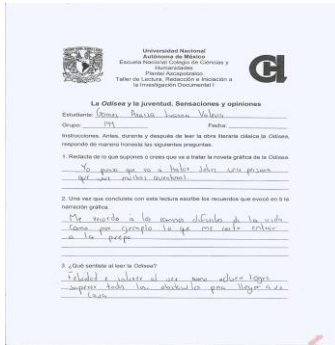 Universidad Nacional
Autónoma de México
Escuela Nacional Colegio de Ciencias y
Humanidades
Plantel Azcapotzalco
Taller de Lectura, Redacción e Iniciación a
la Investigación Documental I
La Odisea y la juventud. Sensaciones y opiniones
Estudiante: Gomez Ivanna Valeria
Grupo: Fecha:
Instrucciones. Antes, durante y después de leer la obra literaria clásica la Odisea,
responde de manera honesta las siguientes preguntas.
1. Redacta de lo que supones o crees que va a tratar la novela gráfica de la Odisea.
Yo pense que va a tratar sobre una persona
que vive muchas aventuras
2. Una vez que concluiste con esta lectura escribe los recuerdos que evocó en ti la
narración gráfica.
Me recordo a los caminos dificiles de la vida
como por ejemplo lo que me costo entrar
a la prepa
3. ¿Qué sentiste al leer la Odisea?
Felicidad e interes al ver como odiseo logro
superar todos los obstaculos para llegar a su
casa